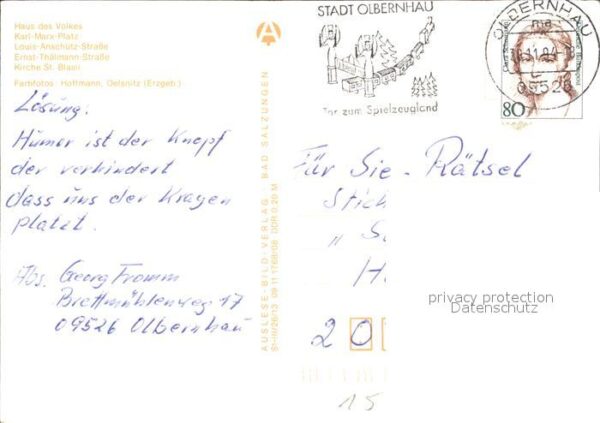 Haus des Volkes
Karl-Marx-Platz
Louis-Anschütz-Straße
Ernst-Thälmann-Straße
Kirche St. Blasii
Farbfotos: Hoffmann, Oelsnitz (Erzgeb.)
Lösung:
Humor ist der Knopf
der verhindert
dass uns der Kragen
platzt.
Abs. Georg Fromm
Brettmühlenweg 17
09526 Olbernhau
AUSLESE-BILD-VERLAG · BAD SALZUNGEN
09 11 1768/08 DDR 0,20 M
STADT OLBERNHAU
Tor zum Spielzeugland
OLBERNHAU
09526
80
Für Sie - Rätsel
Stich
H
20
15
privacy protection
Datenschutz